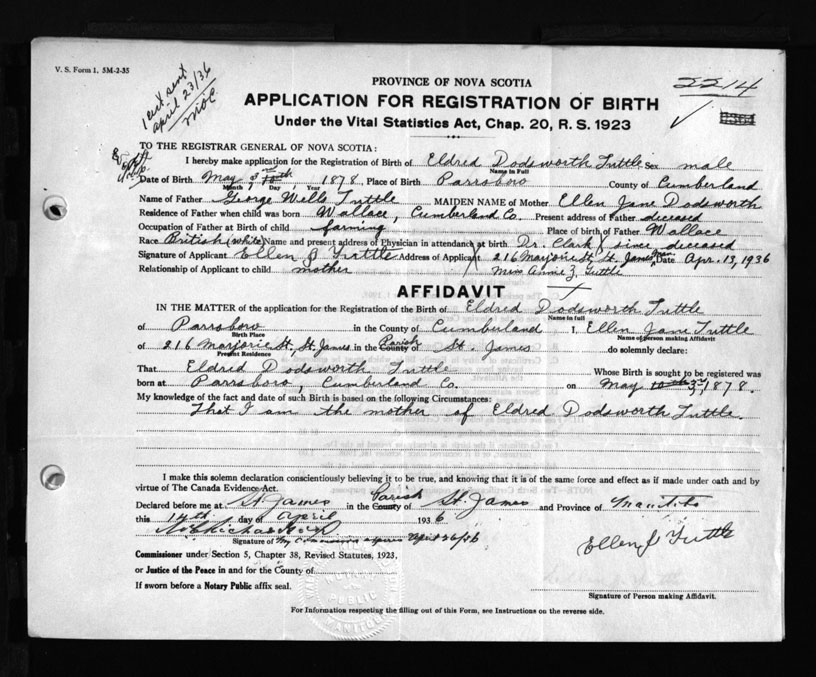 V. S. Form 1. 5M-2-35
1 cert sent
april 23/36
PROVINCE OF NOVA SCOTIA
2214
APPLICATION FOR REGISTRATION OF BIRTH
Under the Vital Statistics Act, Chap. 20, R. S. 1923
TO THE REGISTRAR GENERAL OF NOVA SCOTIA:
I hereby make application for the Registration of Birth of Eldred Dodsworth Tuttle Sex male
Name in Full
Date of Birth May 3rd 10th 1878, Place of Birth Parrsboro County of Cumberland
Month Day, Year
Name of Father George Wells Tuttle MAIDEN NAME of Mother Ellen Jane Dodsworth
Residence of Father when child was born Wallace, Cumberland Co. Present address of Father deceased
Occupation of Father at Birth of child farming Place of birth of Father Wallace
Race British (white) Name and present address of Physician in attendance at birth Dr. Clark since deceased
Signature of Applicant Ellen J Tuttle Address of Applicant 216 Marjorie St. St. James Date Apr. 13, 1936
Relationship of Applicant to child mother Miss Annie Z. Tuttle
AFFIDAVIT
IN THE MATTER of the application for the Registration of the Birth of Eldred Dodsworth Tuttle
Name in full
of Parrsboro in the County of Cumberland I, Ellen Jane Tuttle
Birth Place Name of person making Affidavit
of 216 Marjorie St, St. James in the County Parish of St. James do solemnly declare:
Present Residence
That Eldred Dodsworth Tuttle Whose Birth is sought to be registered was
born at Parrsboro, Cumberland Co. on May 10th 3rd, 1878.
My knowledge of the fact and date of such Birth is based on the following Circumstances:
That I am the mother of Eldred Dodsworth Tuttle.
I make this solemn declaration conscientiously believing it to be true, and knowing that it is of the same force and effect as if made under oath and by
virtue of The Canada Evidence Act.
Declared before me at St. James in the County Parish of St. James and Province of Manitoba
this 14th day of April 1936
Signature of My Commission expires April 26/36
Ellen J Tuttle
Commissioner under Section 5, Chapter 38, Revised Statutes, 1923,
or Justice of the Peace in and for the County of
If sworn before a Notary Public affix seal.
Signature of Person making Affidavit.
PUBLIC
MANITOBA
For Information respecting the filling out of this Form, see Instructions on the reverse side.